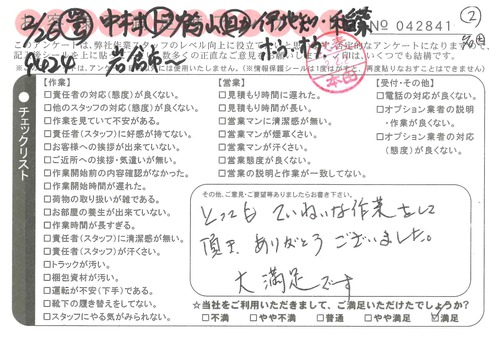 2/26
No 042841
②
このアンケートは、弊社作業スタッフのレベル向上に役立て
チェックリスト
【作業】
□責任者の対応(態度)が良くない。
□他のスタッフの対応(態度)が良くない。
□作業を見ていて不安がある。
□責任者(スタッフ)に好感が持てない。
□お客様への挨拶が出来ていない。
□ご近所への挨拶・気遣いが無い。
□作業開始前の内容確認がなかった。
□作業開始時間が遅れた。
□荷物の取り扱いが雑である。
□お部屋の養生が出来ていない。
□作業時間が長すぎる。
□責任者(スタッフ)に清潔感が無い。
□責任者(スタッフ)が汗くさい。
□トラックが汚い。
□梱包資材が汚い。
□運転が不安(下手)である。
□靴下の履き替えをしてない。
□スタッフにやる気がみられない。
【営業】
□見積もり時間に遅れた。
□見積もり時間が長い。
□営業マンに清潔感が無い。
□営業マンが煙草くさい。
□営業マンが汗くさい。
□営業態度が良くない。
□営業の説明と作業が一致してない。
【受付・その他】
□電話の対応が良くない。
□オプション業者の説明
・作業が良くない。
□オプション業者の対応
(態度)が良くない。
その他、ご意見・ご要望等ありましたらお書き下さい。
とってもていねいな作業をして
頂き、ありがとうございました。
大満足です
☆当社をご利用いただきまして、ご満足いただけたでしょうか?
□不満 □やや不満 □普通 □やや満足 □満足